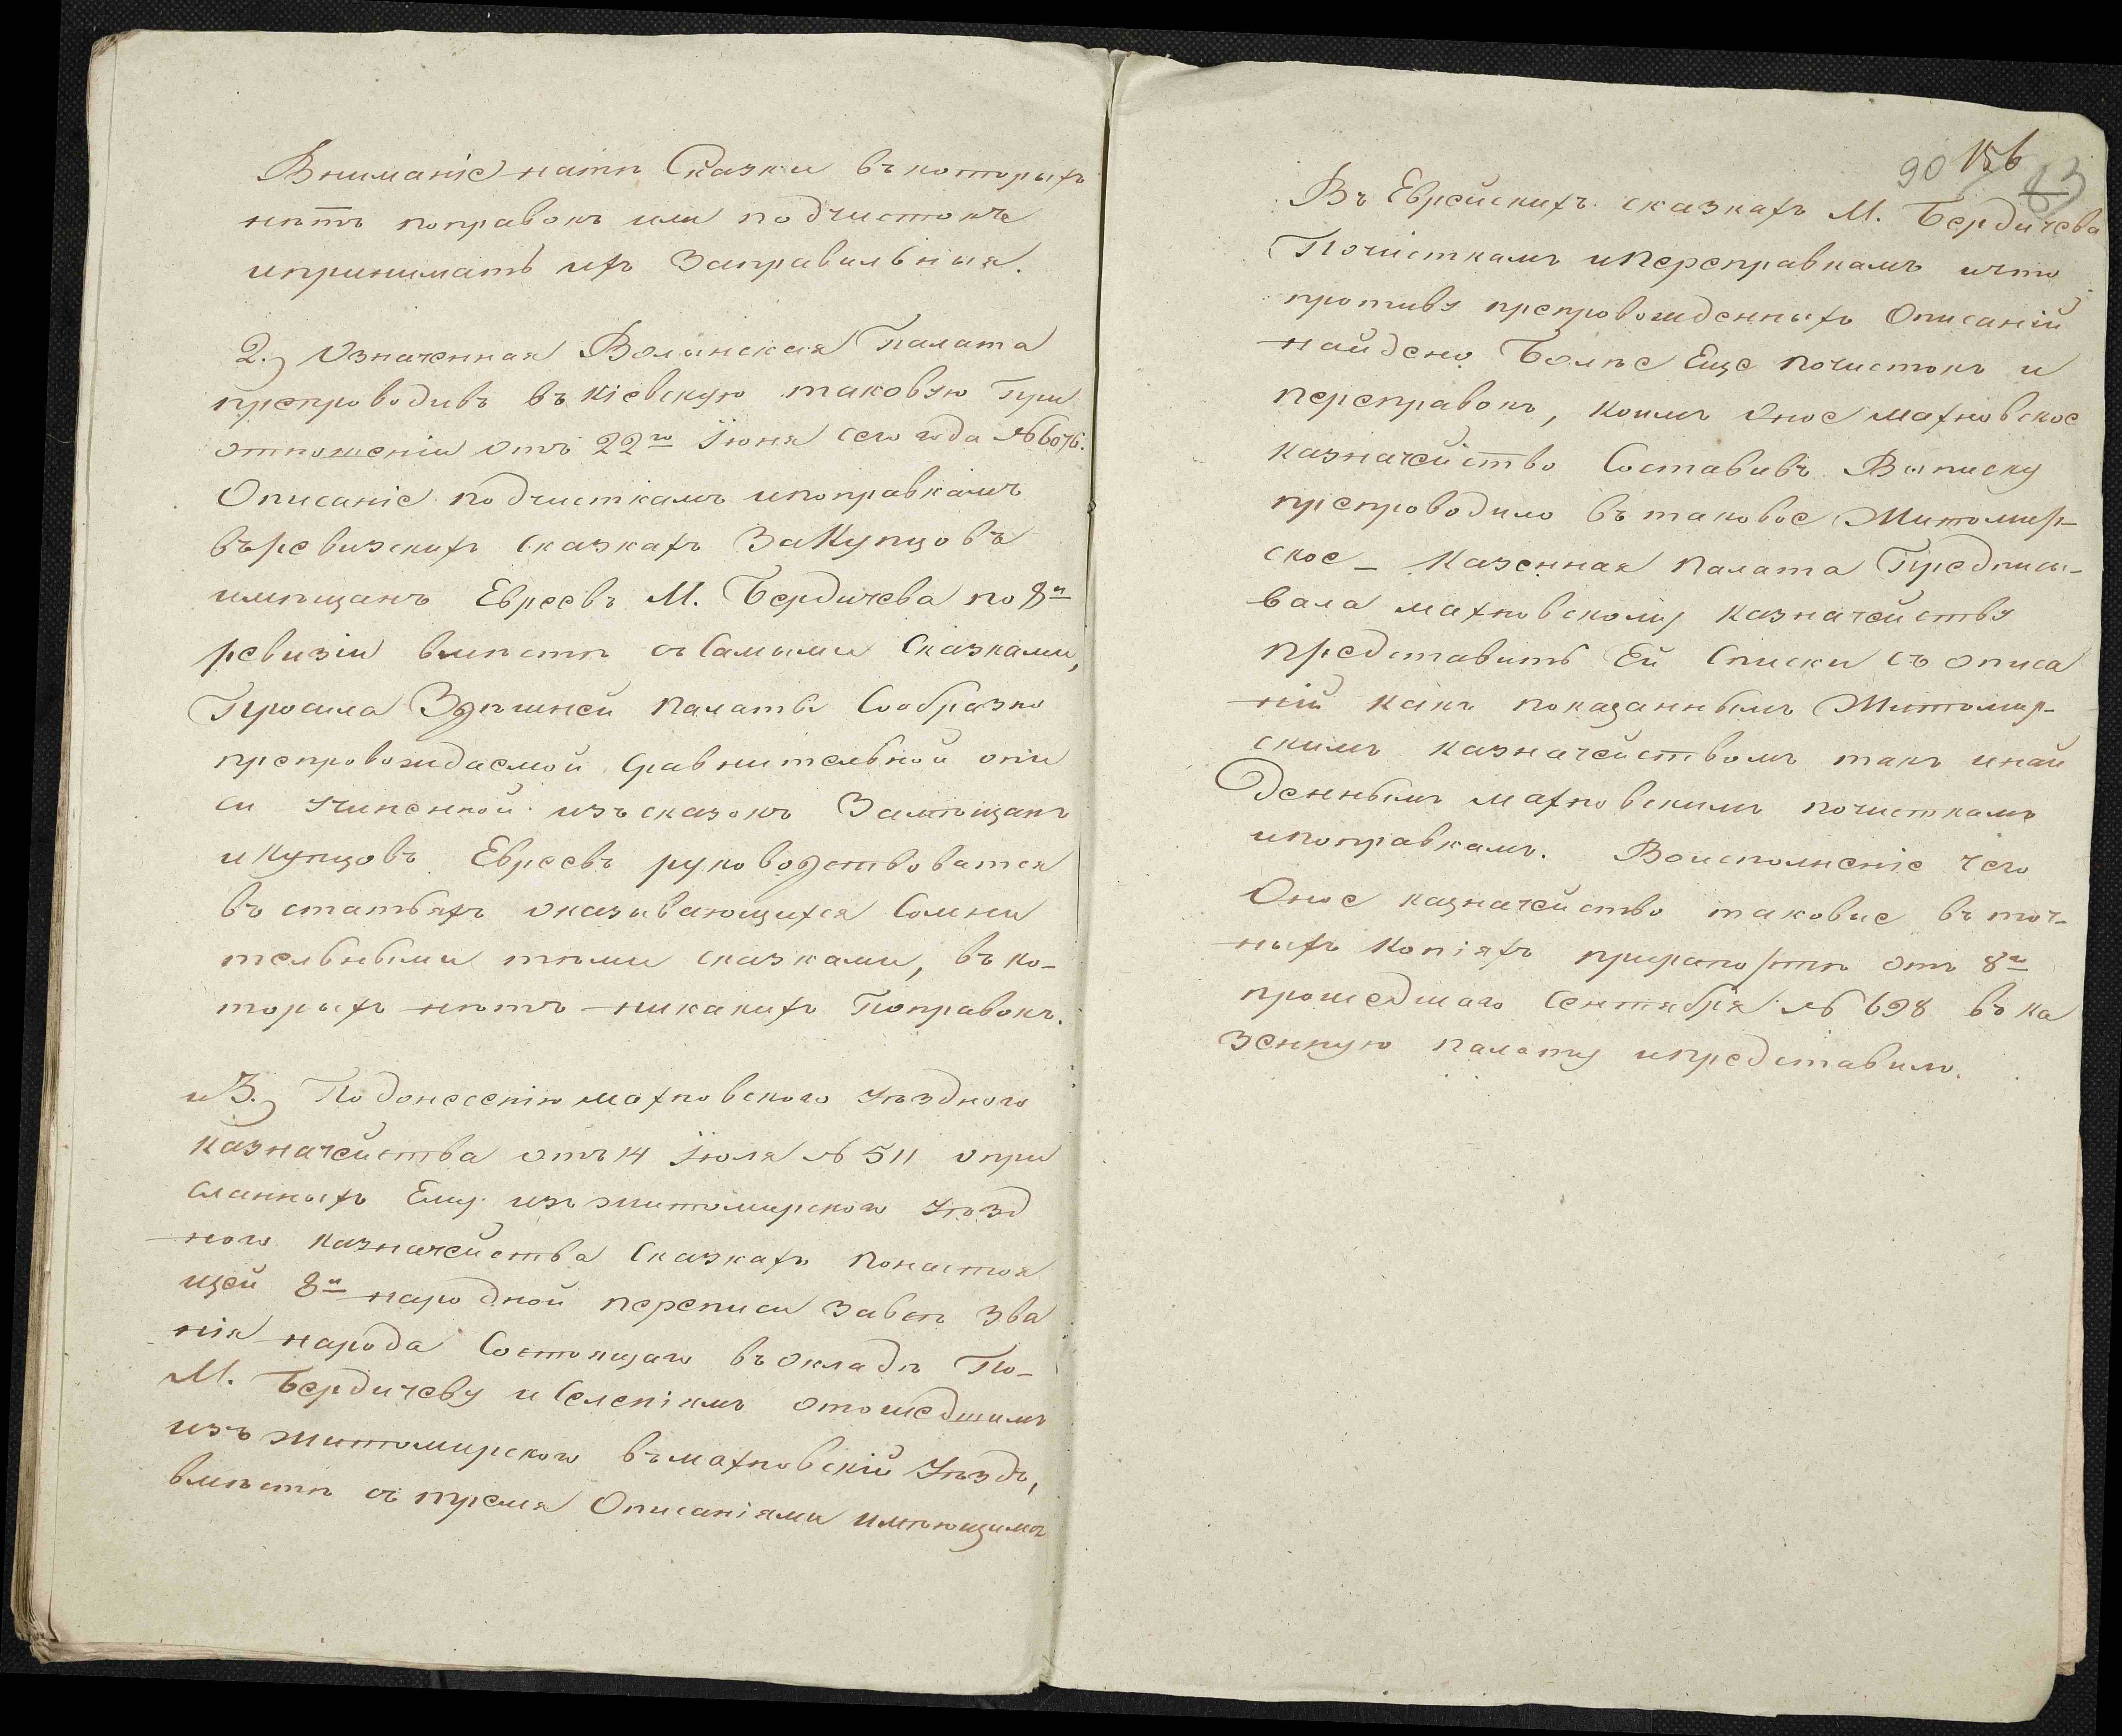 Вниманіе натѣ Сказки въкоторыхъ
нѣтъ поправокъ или подчистокъ
ипринимать ихъ Заправильныя.
2., Означенная Волынская Палата
препроводивъ въ Кіевскую таковую При
отношеніи отъ 22го Іюня сего года № 6076.
Описаніе подчисткамъ ипоправкамъ
въревизскихъ сказкахъ ЗаКупцовъ
имѣщанъ Евреевъ М. Бердичева по 8й
ревизіи вмѣстѣ съ Самыми Сказками,
Просила Здѣшней Палаты Сообразно
препровождаемой Сравнительной опи
си учиненной изъ сказокъ Замѣщанъ
иКупцовъ Евреевъ руководствоватся
въ статьяхъ оказывающихся Сомни
тельными тѣми сказками, въ ко-
торыхъ нѣтъ никакихъ Поправокъ.
и 3., Подонесенію махновского Уѣздного
Казначейства отъ 14 Іюля № 511 опри
сланныхъ Ему изъ житомирского Уѣзд
ного казначейства Сказкахъ Понастоя
щей 8й народной переписи Завсѣ зва
нія народа Состоящаго въ окладѣ По-
М. Бердичеву и Селеніямъ отошедшимъ
изъ житомирского въ махновскій Уѣздъ,
вмѣстѣ съ тремя Описаніями имѣющимъ
90 156
83
Въ Еврейскихъ сказкахъ М. Бердичева
Почисткамъ иПереправкамъ ичто
противу препровожденныхъ Описаній
найдено Болѣе Еще почистокъ и
переправокъ, коимъ оное махновское
казначейство Составивъ Выписку
препроводило въ таковое Житомир-
ское – Казенная Палата Предписы-
вала махновскому Казначейству
представить Ей Списки съ описа
ній какъ показаннымъ Житомир-
скимъ казначействомъ такъ инай
деннымъ махновскимъ почисткамъ
ипоправкамъ. Воисполненіе чего
Оное казначейство таковые въ точ-
ныхъ копіяхъ прирапортѣ отъ 8го
прошедшаго Сентября № 698 въ ка
зенную палату ипредставило.